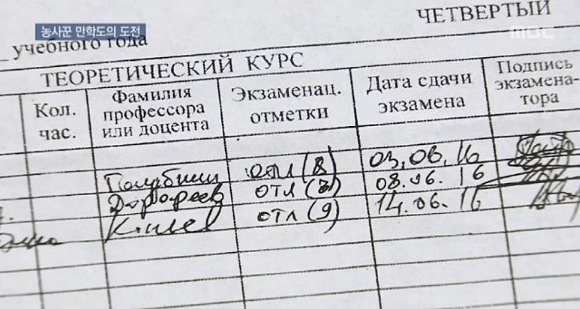 농사꾼 만학도의 도전
MBC
ЧЕТВЕРТЫЙ
учебного года
ТЕОРЕТИЧЕСКИЙ КУРС
Кол. час.
Фамилия профессора или доцента
Экзаменац. отметки
Дата сдачи экзамена
Подпись экзамена-тора
отл (8) 03.06.16
отл 08.06.16
отл (9) 14.06.16